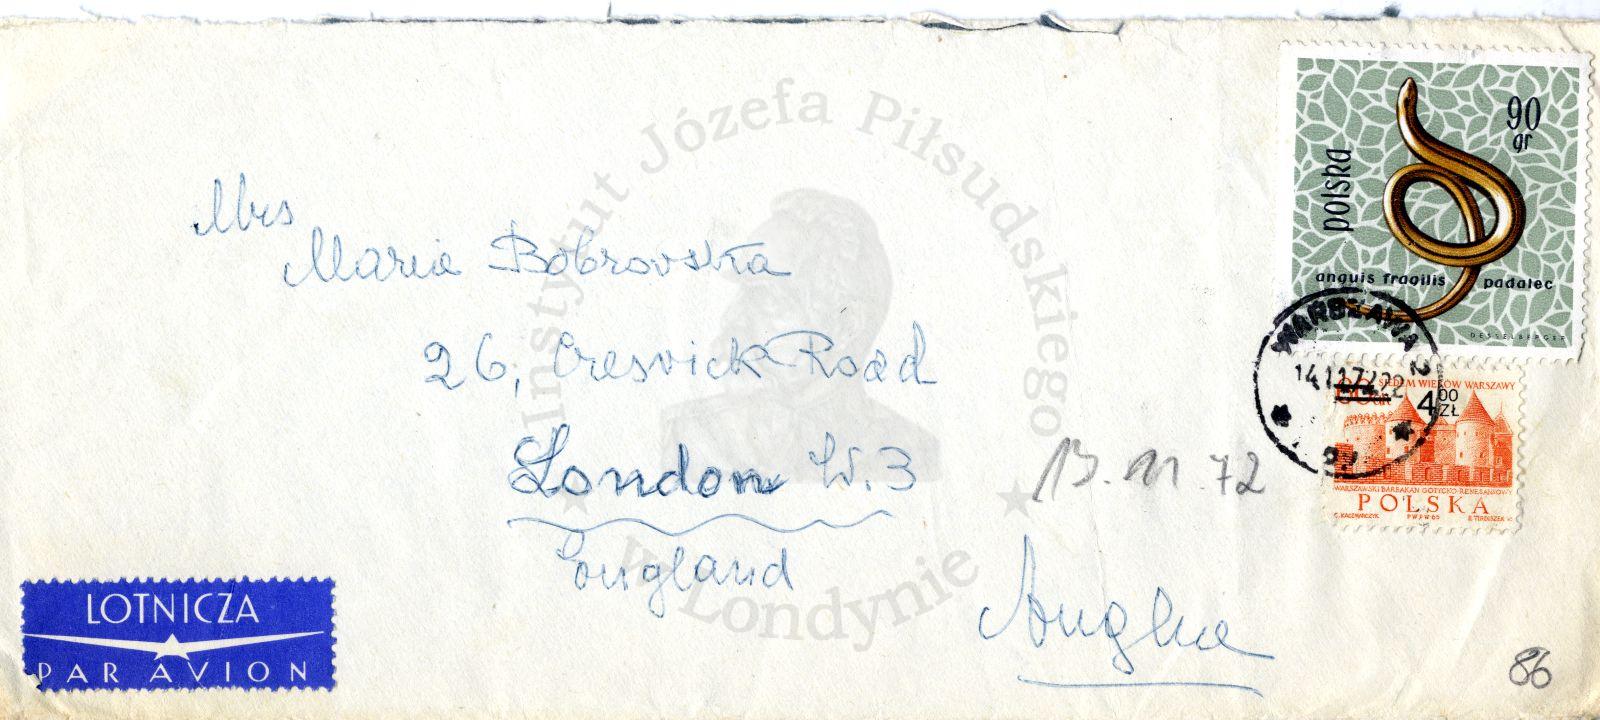 Instytut Józefa Piłsudskiego
w Londynie
90
gr
polska
anguis fragilis padalec
DESSELBERGER
WARSZAWA 2
SIEDEM WIEKÓW WARSZAWY
4 00 ZŁ
WARSZAWSKI BARBAKAN GOTYCKO-RENESANSOWY
POLSKA
PWPW 65
Mrs
Maria Bobrovska
26, Cresvick Road
London W.3
England
13.11.72
Anglia
LOTNICZA
PAR AVION
86